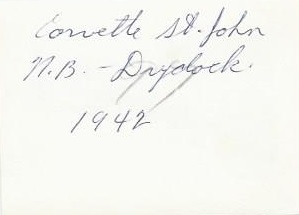 Corvette St. John
N.B. - Drydock.
1942